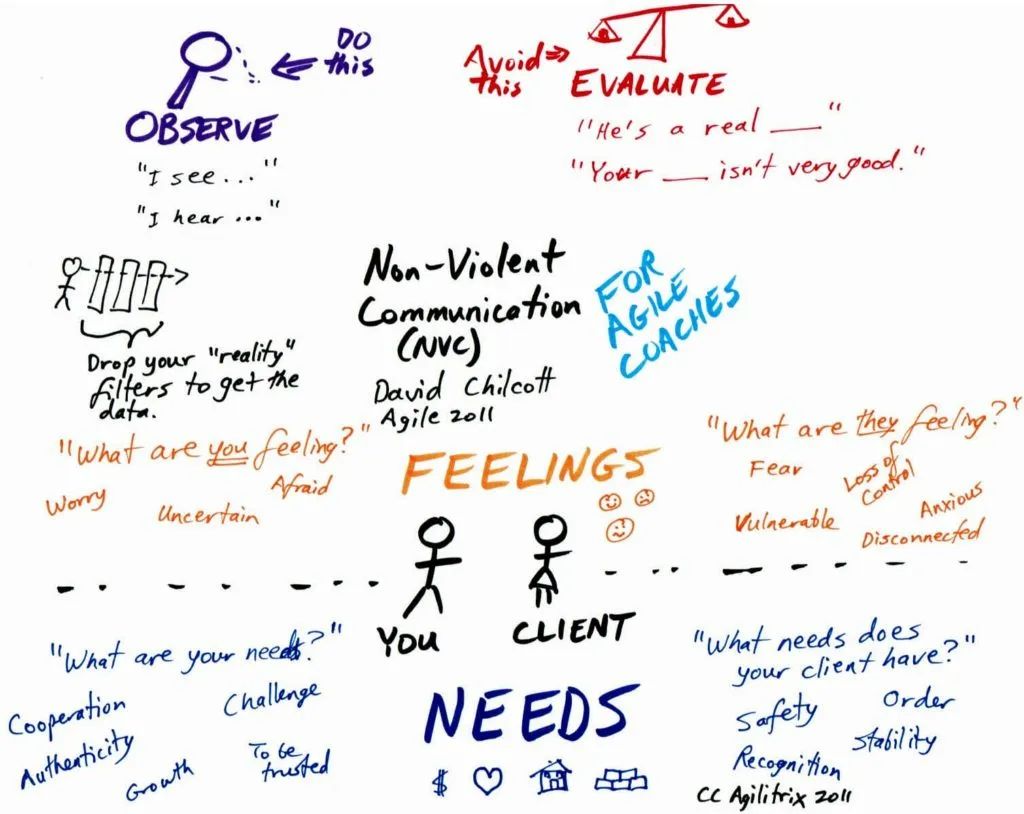 DO this
Avoid this
OBSERVE
EVALUATE
"I see..."
"I hear..."
"He's a real ___"
"Your ___ isn't very good."
Drop your "reality"
filters to get the
data.
Non-Violent
Communication
(NVC)
David Chilcott
Agile 2011
FOR
AGILE
COACHES
FEELINGS
"What are you feeling?"
Worry
Uncertain
Afraid
"What are they feeling?"
Fear
Loss of
Control
Vulnerable
Anxious
Disconnected
YOU
CLIENT
NEEDS
$
"What are your needs?"
Cooperation
Challenge
Authenticity
Growth
To be
trusted
"What needs does
your client have?"
Safety
Order
Stability
Recognition
CC Agilitrix 2011